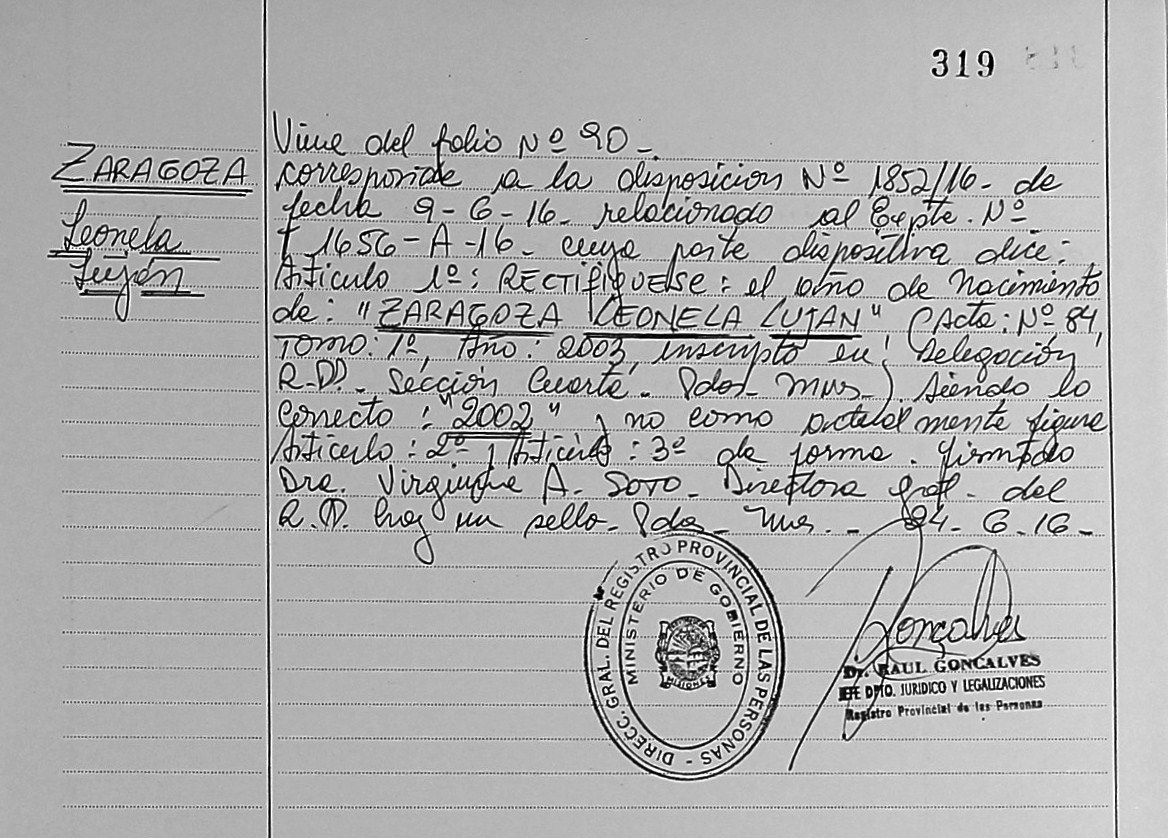 319
ZARAGOZA
Leonela
Luján
Viene del folio Nº 90_.
corresponde a la disposicion Nº 1852/16_ de
fecha 9-6-16_ relacionado al Expte. Nº
1656-A-16_ cuya parte dispositiva dice:
Artículo 1º: RECTIFIQUESE: el año de Nacimiento
de: "ZARAGOZA LEONELA LUJAN" (Acta: Nº 84,
TOMO: 1º, Año: 2003, inscripto en: Delegación
R.P. Sección Cuarta_ Pdas_ Mnes_). Siendo lo
correcto: "2002" y no como actualmente figura
Artículo: 2º y Artículo: 3º de forma. firmado
Dra. Virginia A. SOTO_ Directora gral_ del
R.P. hay un sello_ Pdas_ Mnes_ _ 24_ 6_16_
DIRECC. GRAL. DEL REGISTRO PROVINCIAL DE LAS PERSONAS -
MINISTERIO DE GOBIERNO
MISIONES
Goncalves
Dr. RAUL GONCALVES
JEFE DPTO. JURIDICO Y LEGALIZACIONES
Registro Provincial de las Personas